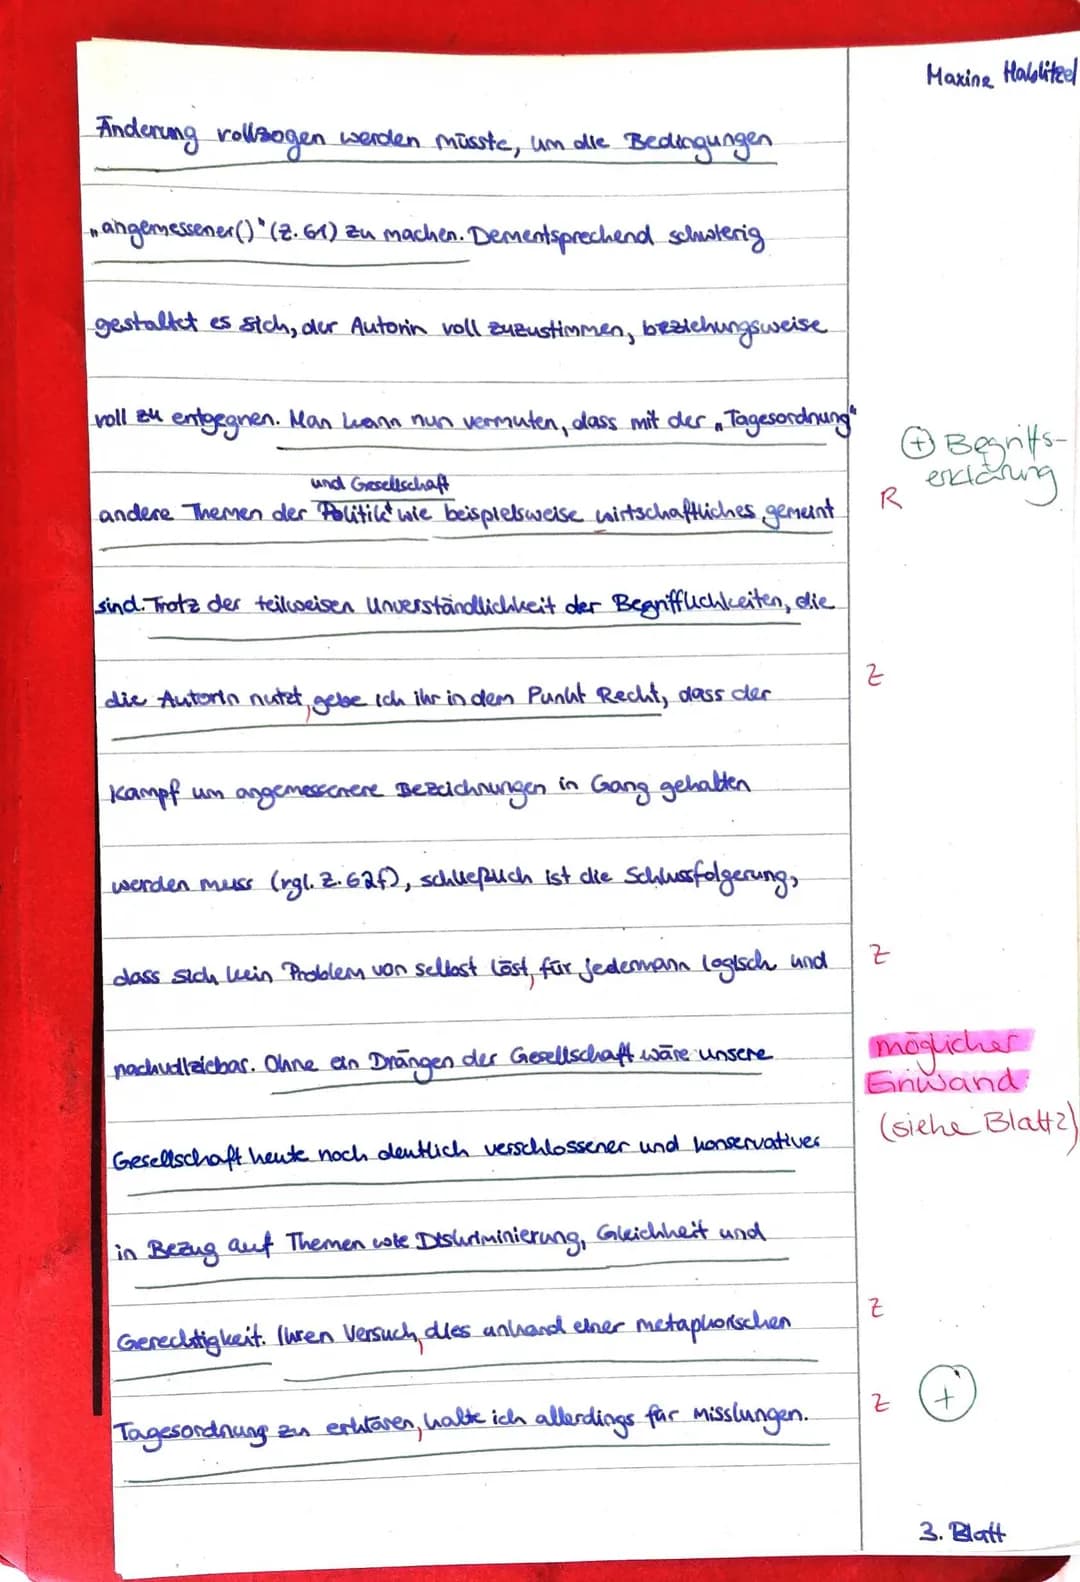 Maxine Hablitzel
Änderung vollzogen werden müsste, um die Bedingungen
„angemessener()" (Z. 61) zu machen. Dementsprechend schwierig
gestaltet es sich, der Autorin voll zuzustimmen, beziehungsweise
voll zu entgegnen. Man kann nun vermuten, dass mit der „Tagesordnung"
⊕ Begriffs-
erklärung
und Gesellschaft
andere Themen der Politik wie beispielsweise wirtschaftliches gemeint
R
sind. Trotz der teilweisen Unverständlichkeit der Begrifflichkeiten, die
die Autorin nutzt, gebe ich ihr in dem Punkt Recht, dass der
Z
Kampf um angemessenere Bezeichnungen in Gang gehalten
werden muss (vgl. Z. 62f), schließlich ist die Schlussfolgerung,
dass sich kein Problem von selbst löst, für jedermann logisch und
Z
nachvollziehbar. Ohne ein Drängen der Gesellschaft wäre unsere
möglicher
Einwand
(siehe Blatt 2)
Gesellschaft heute noch deutlich verschlossener und konservativer
in Bezug auf Themen wie Diskriminierung, Gleichheit und
Gerechtigkeit. Ihren Versuch, dies anhand einer metaphorischen
Z
Tagesordnung zu erklären, halte ich allerdings für misslungen.
Z
⊕
3. Blatt